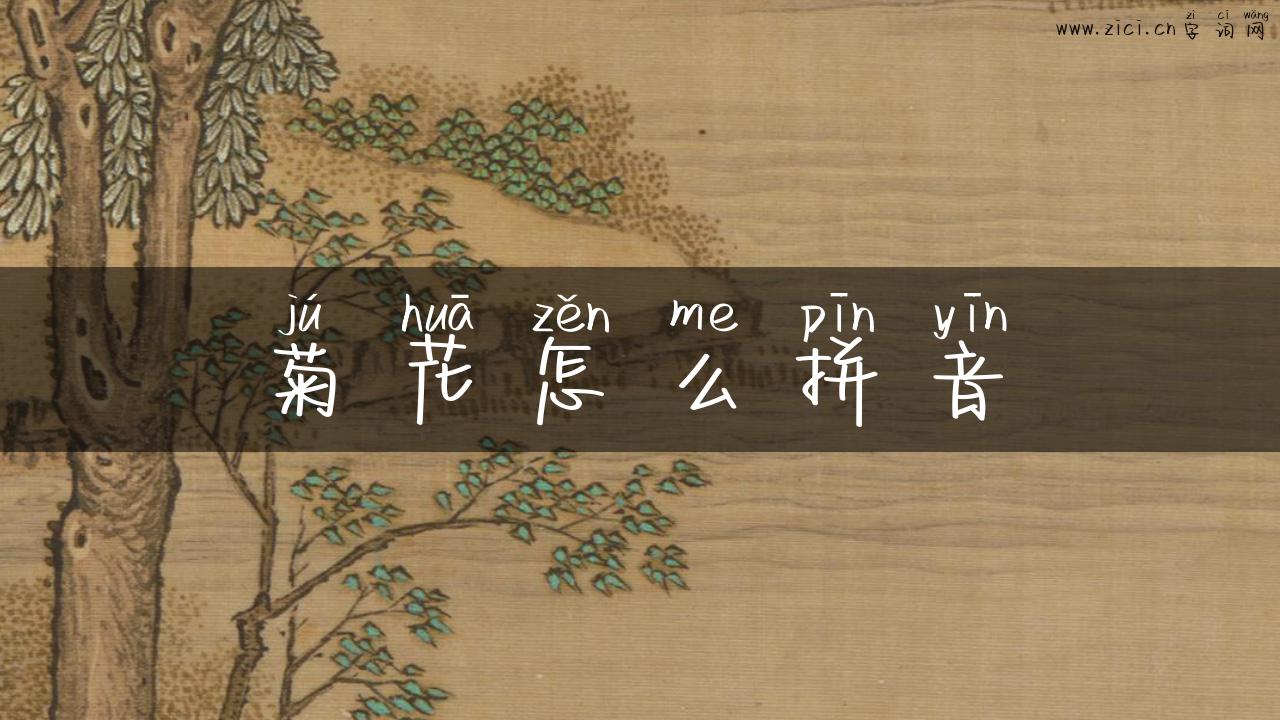 zì cí wǎng
www.zici.cn 字词网
jú huā zěn me pīn yīn
菊花怎么拼音